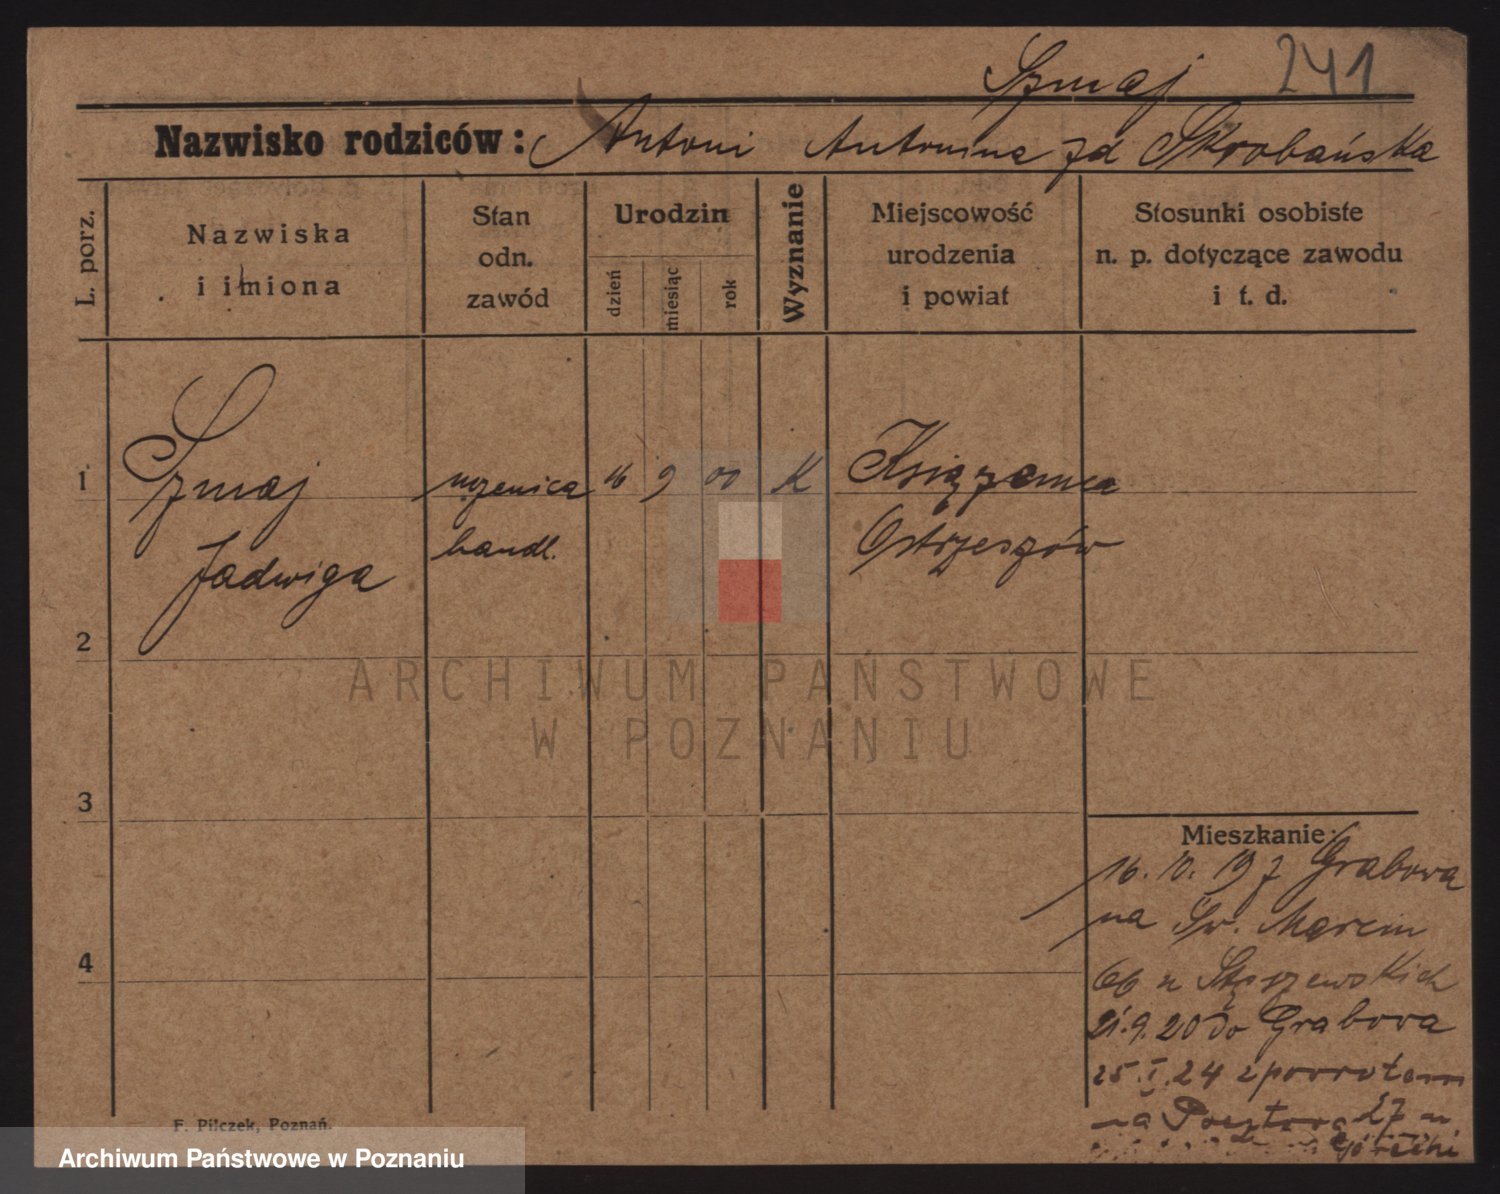 Szmaj 241
Nazwisko rodziców: Antoni Antonina zd Skrobańska
L. porz.
Nazwiska
i imiona
Stan
odn.
zawód
Urodzin
dzień
miesiąc
rok
Wyznanie
Miejscowość
urodzenia
i powiat
Stosunki osobiste
n. p. dotyczące zawodu
i t. d.
1 Szmaj uczenica 16 9 00 K Książenica
Jadwiga handl. Ostrzeszów
2
3
4
Mieszkanie:
16. 10. 19 z Grabowa
na Św. Marcin
66 u Stęszewskich
21.9.20 do Grabowa
25.I.24 z powrotem
na Pocztową 27 u
F. Pilczek, Poznań.
ARCHIWUM PAŃSTWOWE
W POZNANIU
Archiwum Państwowe w Poznaniu